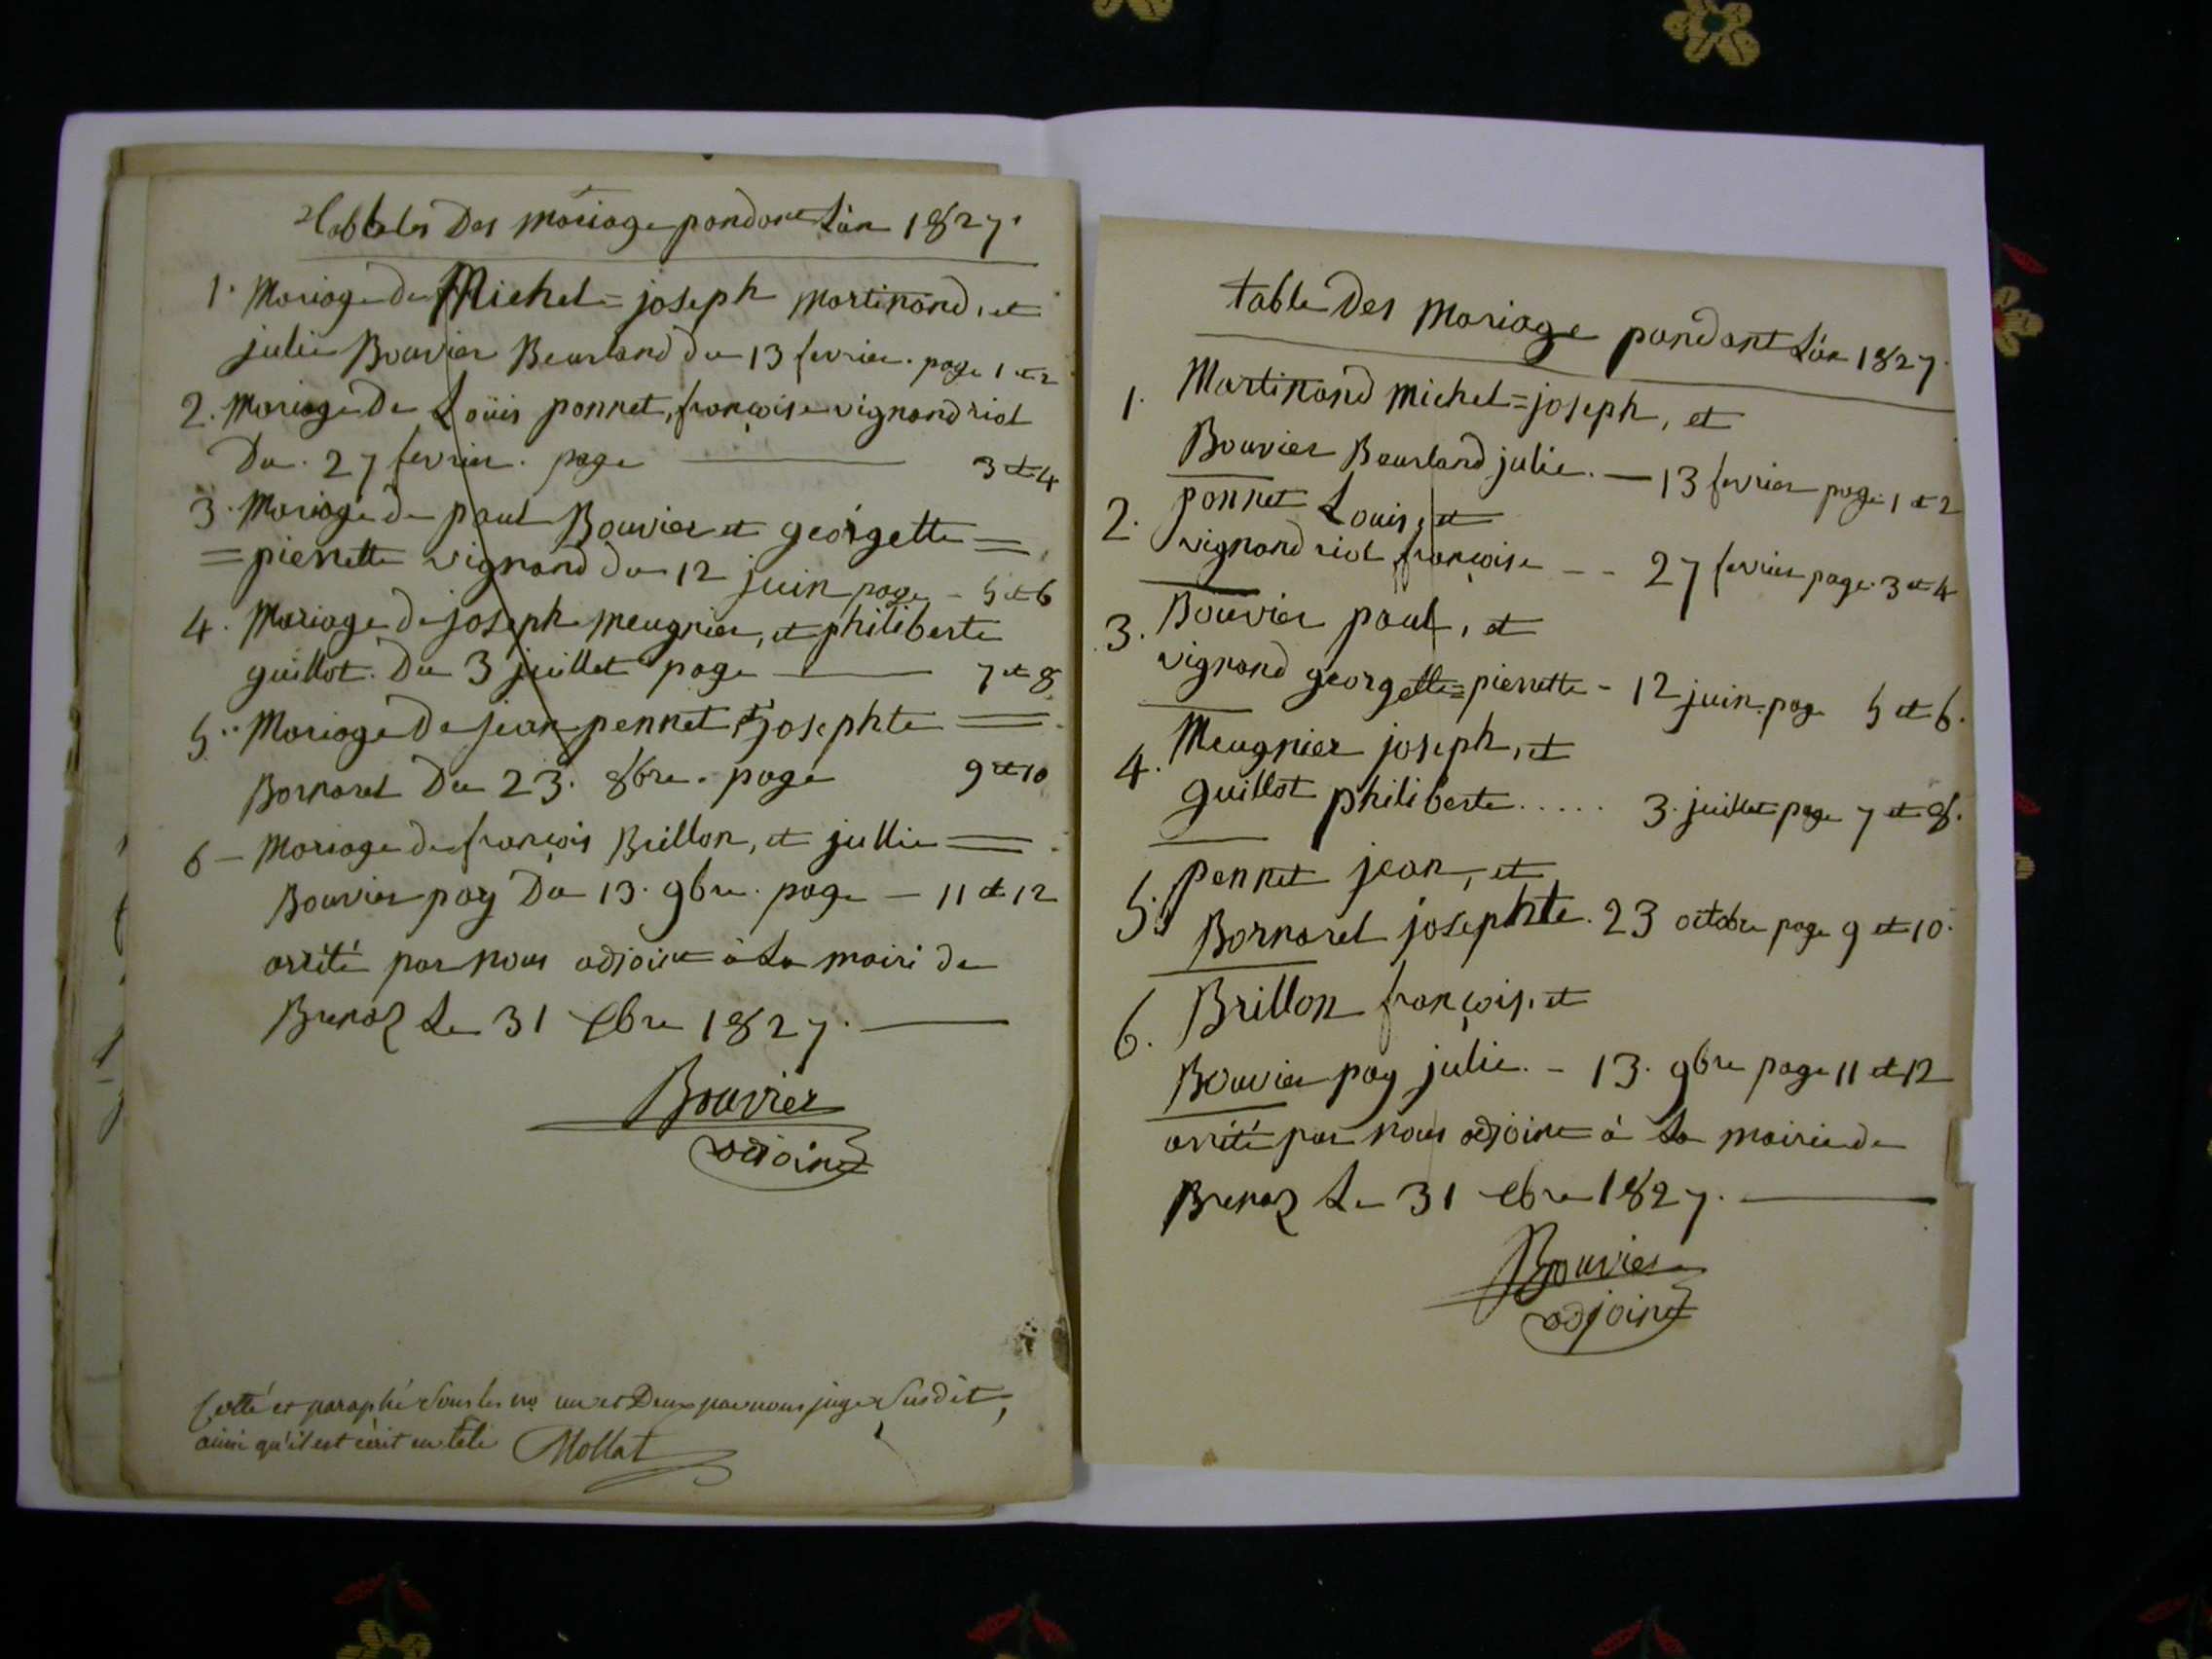 Tabbales Des Mariage pandant L'an 1827.
1. Mariage de Michel=joseph Martinand, et
julie Bouvier Beurland du 13 fevrier. page 1 et 2
2. Mariage De Loüis ponnet, françoise vignand riol
Du. 27 fevrier. page 3 et 4
3. Mariage de paul Bouvier et georgette =
= pierrette vignand du 12 juin page - 5 et 6
4. Mariage de joseph Meugnier, et philiberte
guillot. Du 3 juillet page 7 et 8
5. Mariage De jean pennet et josephte =
Bornarel Du 23. 8bre. page 9 et 10
6 - Mariage de françois Brillon, et jullie =
Bouvier pay Du 13. 9bre. page - 11 et 12
arrêté par nous adjoint à La mairi de
Brenaz Le 31 Xbre 1827.
Bouvier
adjoint
Cotté et paraphé sous les no un et Deux par nous juge Susdit,
ainsi qu'il est écrit en tête Mollat
table Des Mariage pandant L'an 1827.
1. Martinand Michel=joseph, et
Bouvier Beurland julie. - 13 fevrier page 1 et 2
2. ponnet Louis, et
vignand riol françoise - - 27 fevrier page. 3 et 4
3. Bouvier paul, et
vignand georgette=pierrette - 12 juin. page 5 et 6.
4. Meugnier joseph, et
guillot philiberte..... 3. juillet page 7 et 8.
5. pennet jean, et
Bornarel josephte. 23 octobre page 9 et 10.
6. Brillon françois, et
Bouvier pay julie. - 13. 9bre page 11 et 12
arrêté par nous adjoint à La mairie de
Brenaz Le 31 Xbre 1827.
Bouvier
adjoint